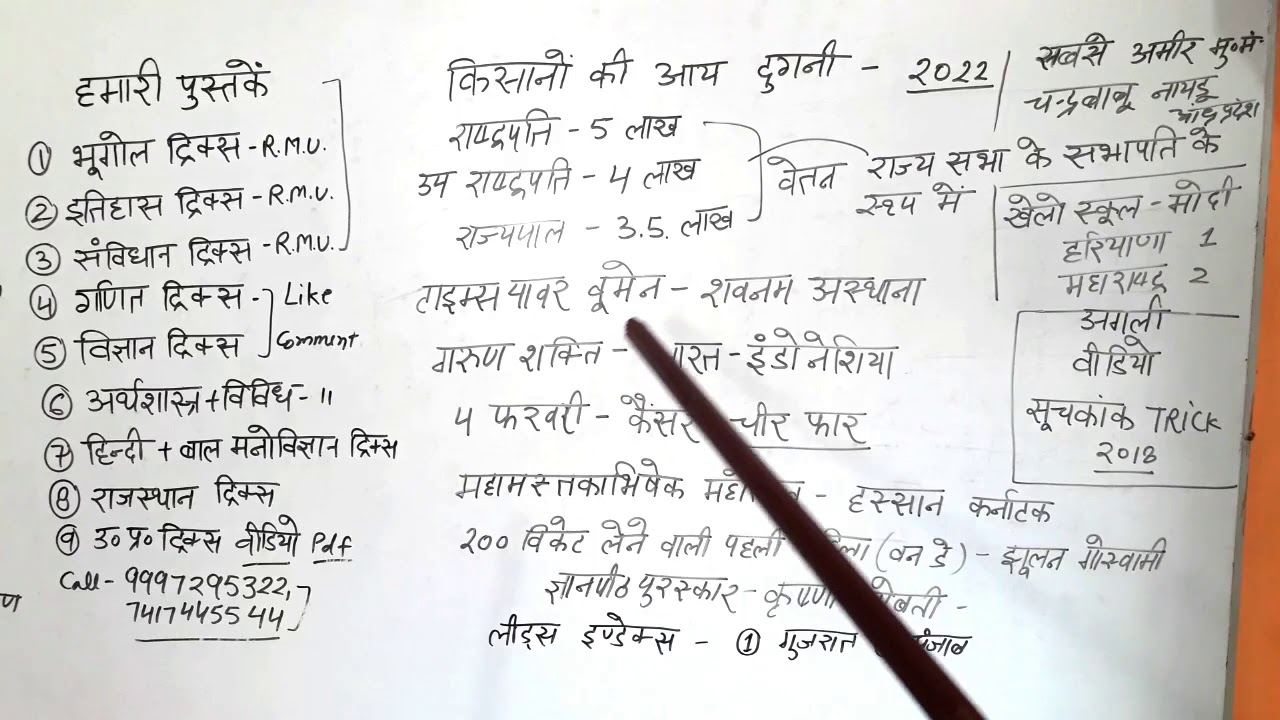 हमारी पुस्तकें
① भूगोल ट्रिक्स - R.M.U.
② इतिहास ट्रिक्स - R.M.U.
③ संविधान ट्रिक्स - R.M.U.
④ गणित ट्रिक्स - Like
⑤ विज्ञान ट्रिक्स Comment
⑥ अर्थशास्त्र + विविध - 11
⑦ हिन्दी + बाल मनोविज्ञान ट्रिक्स
⑧ राजस्थान ट्रिक्स
⑨ उ० प्र० ट्रिक्स वीडियो Pdf
Call - 9997295322,
7417445544
ण
किसानों की आय दुगनी - २०२२
राष्ट्रपति - 5 लाख
उप राष्ट्रपति - 4 लाख
वेतन राज्य सभा के सभापति के
रूप में
राज्यपाल - 3.5. लाख
टाइम्स पावर वूमेन - शवनम अस्थाना
गरुण शक्ति - भारत - इंडोनेशिया
4 फरवरी - कैंसर चीर फार
महामस्तकाभिषेक - हस्सान कर्नाटक
२०० विकेट लेने वाली पहली (वन डे) - झूलन गोस्वामी
ज्ञानपीठ पुरस्कार - कृष्णा -
लीड्स इण्डेक्स - ① गुजरात पंजाब
सबसे अमीर मु०मं०
चन्द्रबाबू नायडू
आंध्र प्रदेश
खेलो स्कूल - मोदी
हरियाणा 1
महाराष्ट्र 2
अगली
वीडियो
सूचकांक TRICK
२०१8